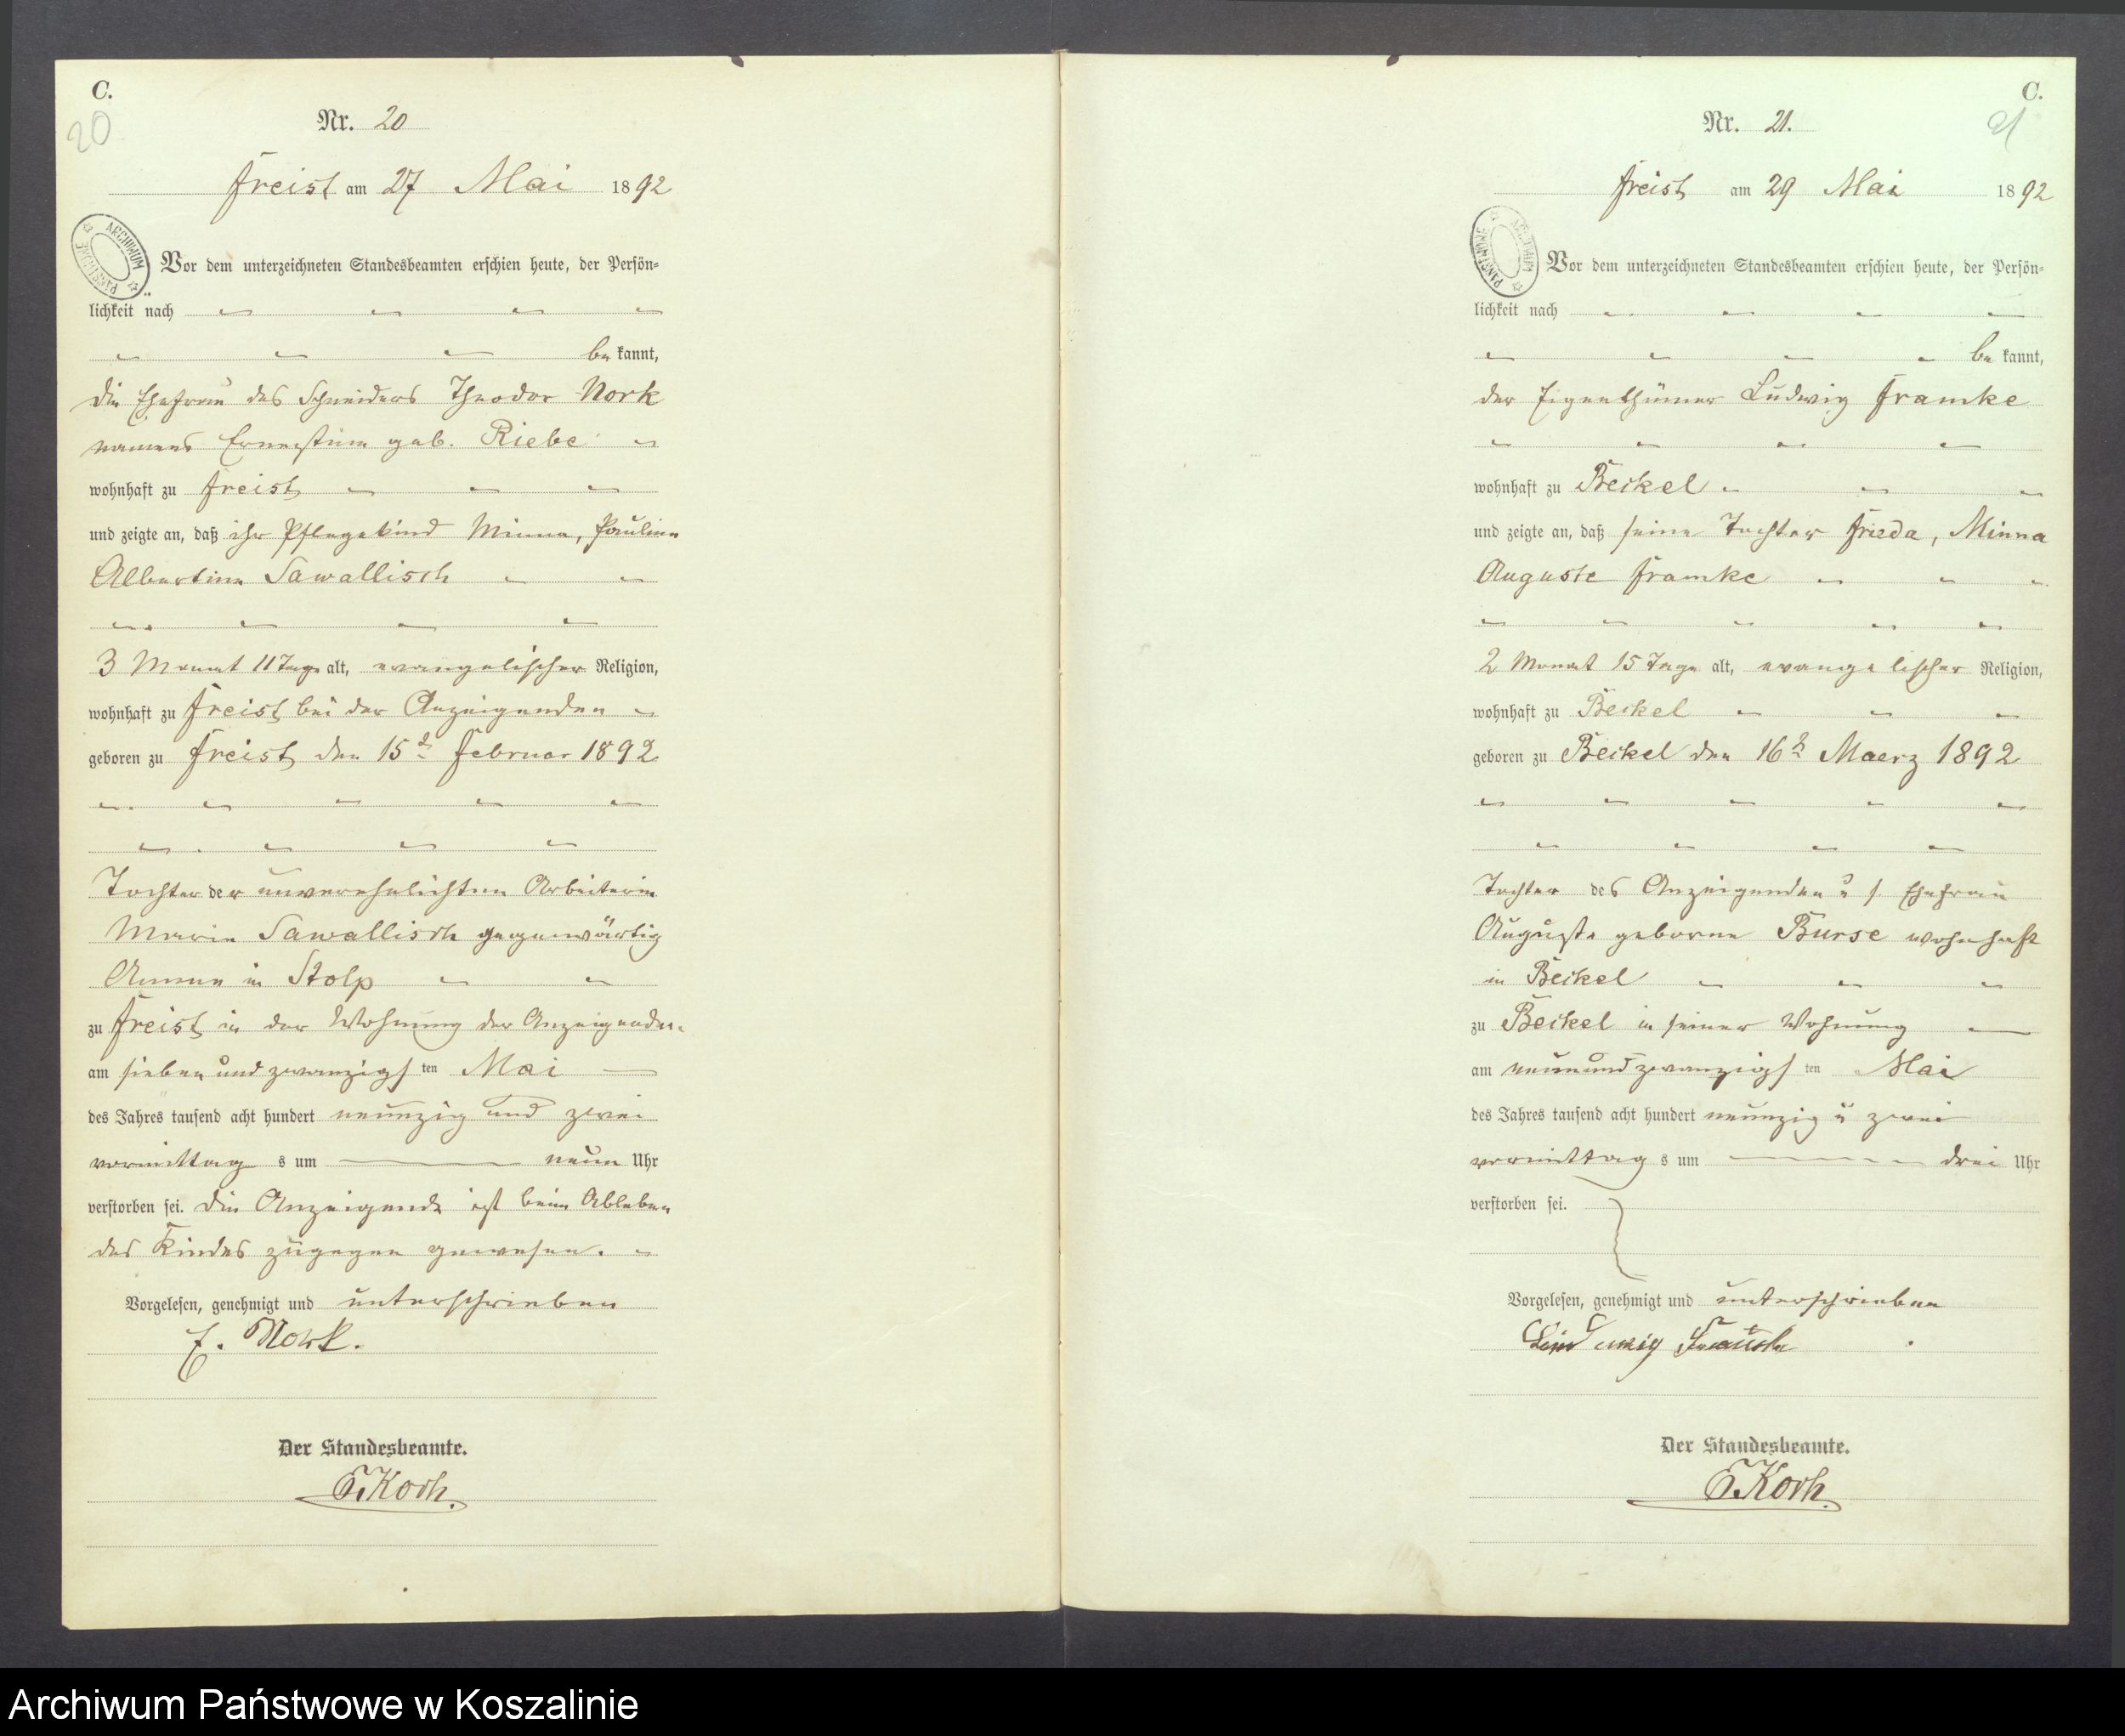 C.
20
Nr. 20
Freist am 27 Mai 1892
ARCHIWUM PAŃSTWOWE
Vor dem unterzeichneten Standesbeamten erschien heute, der Persön=
lichkeit nach
bekannt,
die Ehefrau des Schneiders Theodor Nork
namens Ernestine geb. Riebe
wohnhaft zu Freist
und zeigte an, daß ihr Pflegekind Minna, Pauline
Albertine Sawallisch
3 Monat 11 Tage alt, evangelischer Religion,
wohnhaft zu Freist bei der Anzeigenden
geboren zu Freist den 15t Februar 1892
Tochter der unverehelichten Arbeiterin
Marie Sawallisch gegenwärtig
Amme in Stolp
zu Freist in der Wohnung der Anzeigenden
am sieben und zwanzigsten Mai
des Jahres tausend acht hundert neunzig und zwei
vormittags um neun Uhr
verstorben sei. Die Anzeigende ist beim Ableben
des Kindes zugegen gewesen.
Vorgelesen, genehmigt und unterschrieben
E. Nork.
Der Standesbeamte.
Koch.
C.
21
Nr. 21.
Freist am 29 Mai 1892
ARCHIWUM PAŃSTWOWE
Vor dem unterzeichneten Standesbeamten erschien heute, der Persön=
lichkeit nach
bekannt,
der Eigenthümer Ludwig Framke
wohnhaft zu Beckel
und zeigte an, daß seine Tochter Frieda, Minna
Auguste Framke
2 Monat 15 Tage alt, evangelischer Religion,
wohnhaft zu Beckel
geboren zu Beckel den 16t Maerz 1892
Tochter des Anzeigenden u s. Ehefrau
Auguste geborne Burse wohnhaft
in Beckel
zu Beckel in seiner Wohnung
am neunundzwanzigsten Mai
des Jahres tausend acht hundert neunzig u zwei
vormittags um drei Uhr
verstorben sei.
Vorgelesen, genehmigt und unterschrieben
Ludwig
Der Standesbeamte.
Koch.
Archiwum Państwowe w Koszalinie